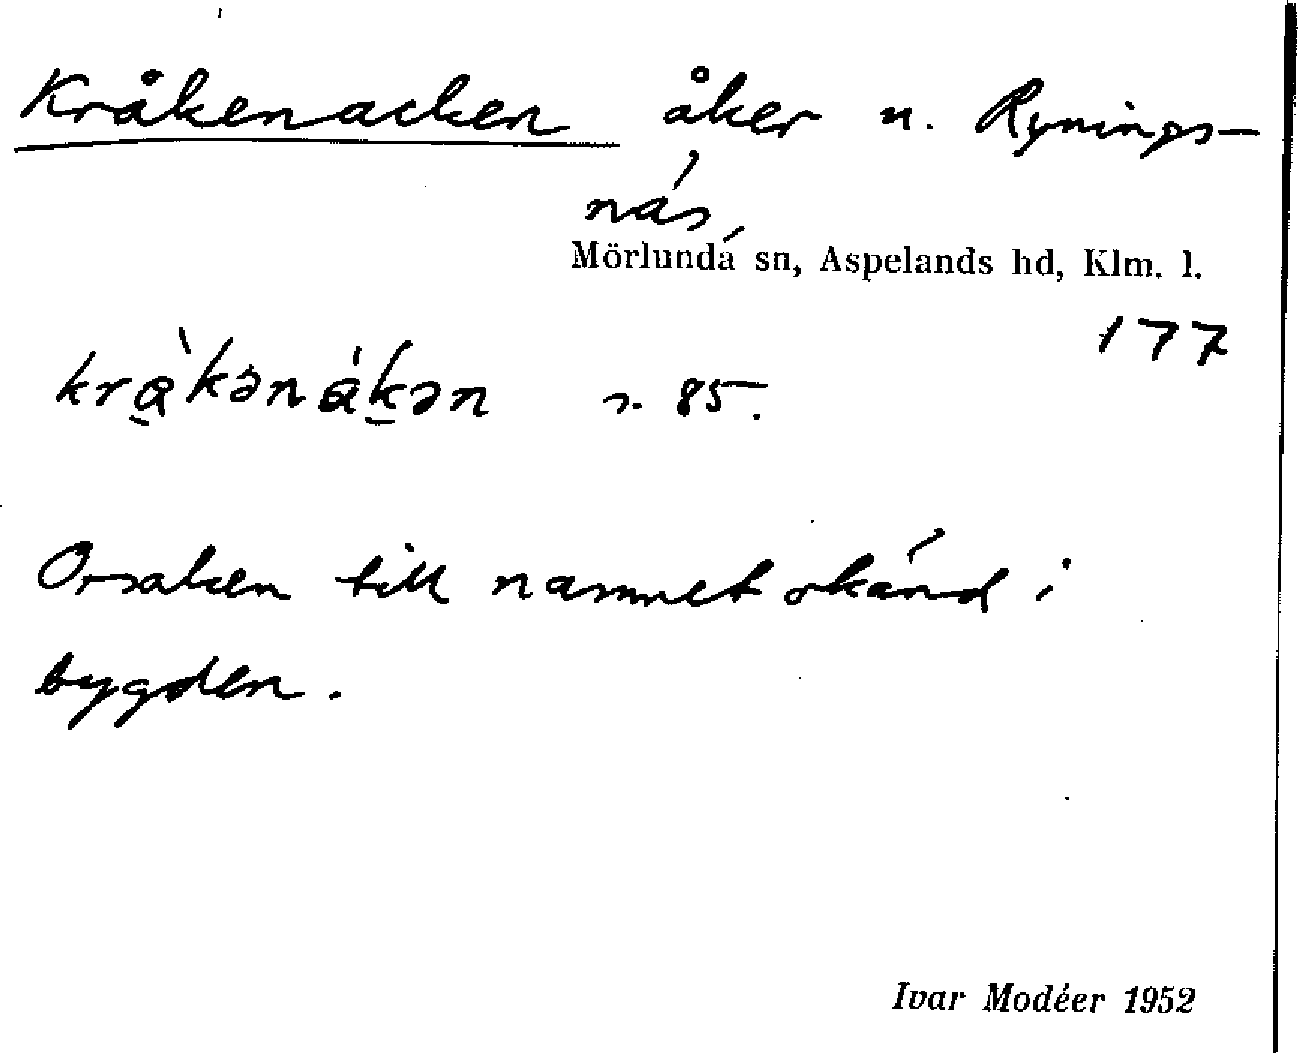 Kråkenacken åker n. Rynings-
näs,
Mörlunda sn, Aspelands hd, Klm. l.
177
krà̠kənák̠ən s. 85.
Orsaken till namnet okänd i
bygden.
Ivar Modéer 1952